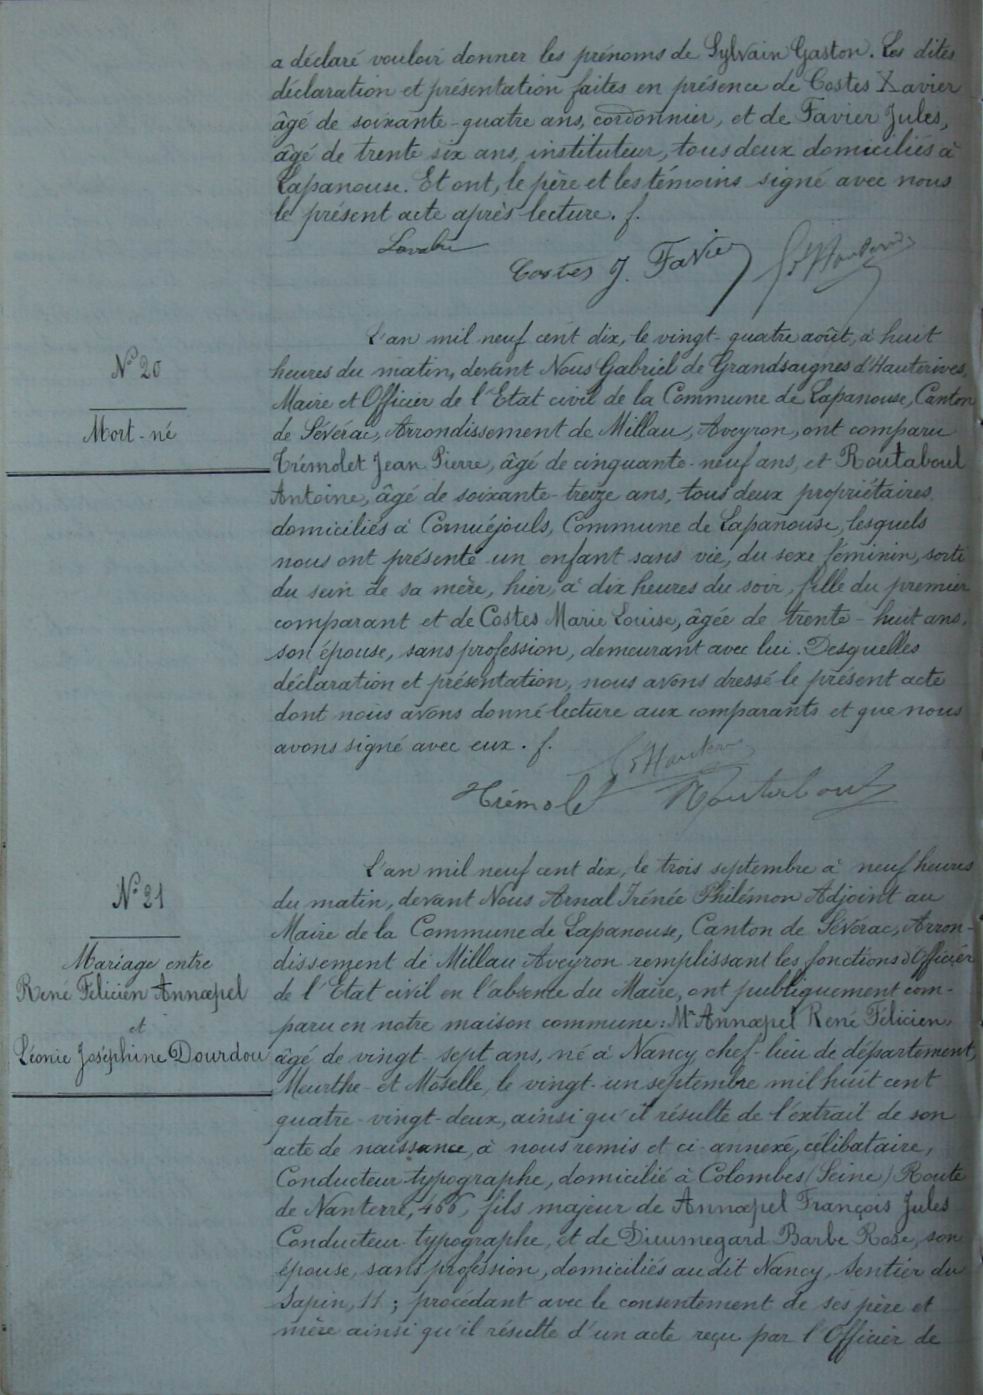 a déclaré vouloir donner les prénoms de Sylvain Gaston. Les dites
déclaration et présentation faites en présence de Costes Xavier
âgé de soixante-quatre ans, cordonnier, et de Favier Jules,
âgé de trente six ans, instituteur, tous deux domiciliés à
Lapanouse. Et ont, le père et les témoins signé avec nous
le présent acte après lecture. f.
Costes J. Favier
N° 20
Mort-né
L'an mil neuf cent dix, le vingt-quatre août, à huit
heures du matin, devant Nous Gabriel de Grandsaignes d'Hauterives,
Maire et Officier de l'Etat civil de la Commune de Lapanouse, Canton
de Sévérac, Arrondissement de Millau, Aveyron, ont comparu
Trémolet Jean Pierre, âgé de cinquante-neuf ans, et Routaboul
Antoine, âgé de soixante-treize ans, tous deux propriétaires
domiciliés à Cornuéjouls, Commune de Lapanouse, lesquels
nous ont présenté un enfant sans vie, du sexe féminin, sorti
du sein de sa mère, hier, à dix heures du soir, fille du premier
comparant et de Costes Marie Louise, âgée de trente-huit ans,
son épouse, sans profession, demeurant avec lui. Desquelles
déclaration et présentation, nous avons dressé le présent acte
dont nous avons donné lecture aux comparants et que nous
avons signé avec eux. f.
Trémolet Routaboul
N° 21
Mariage entre
René Félicien Annœpel
et
Léonie Joséphine Dourdou
L'an mil neuf cent dix, le trois septembre à neuf heures
du matin, devant Nous Arnal Irénée Philémon Adjoint au
Maire de la Commune de Lapanouse, Canton de Sévérac, Arron-
dissement de Millau Aveyron remplissant les fonctions d'Officier
de l'Etat civil en l'absence du Maire, ont publiquement com-
paru en notre maison commune: Mr Annœpel René Félicien,
âgé de vingt-sept ans, né à Nancy chef-lieu de département,
Meurthe-et Moselle, le vingt-un septembre mil huit cent
quatre-vingt-deux, ainsi qu'il résulte de l'extrait de son
acte de naissance, à nous remis et ci-annexé, célibataire,
Conducteur-typographe, domicilié à Colombes (Seine) Route
de Nanterre, 466, fils majeur de Annœpel François Jules
Conducteur-typographe, et de Dieumegard Barbe Rose, son
épouse, sans profession, domiciliés au dit Nancy, Sentier du
Sapin, 11; procédant avec le consentement de ses père et
mère ainsi qu'il résulte d'un acte reçu par l'Officier de